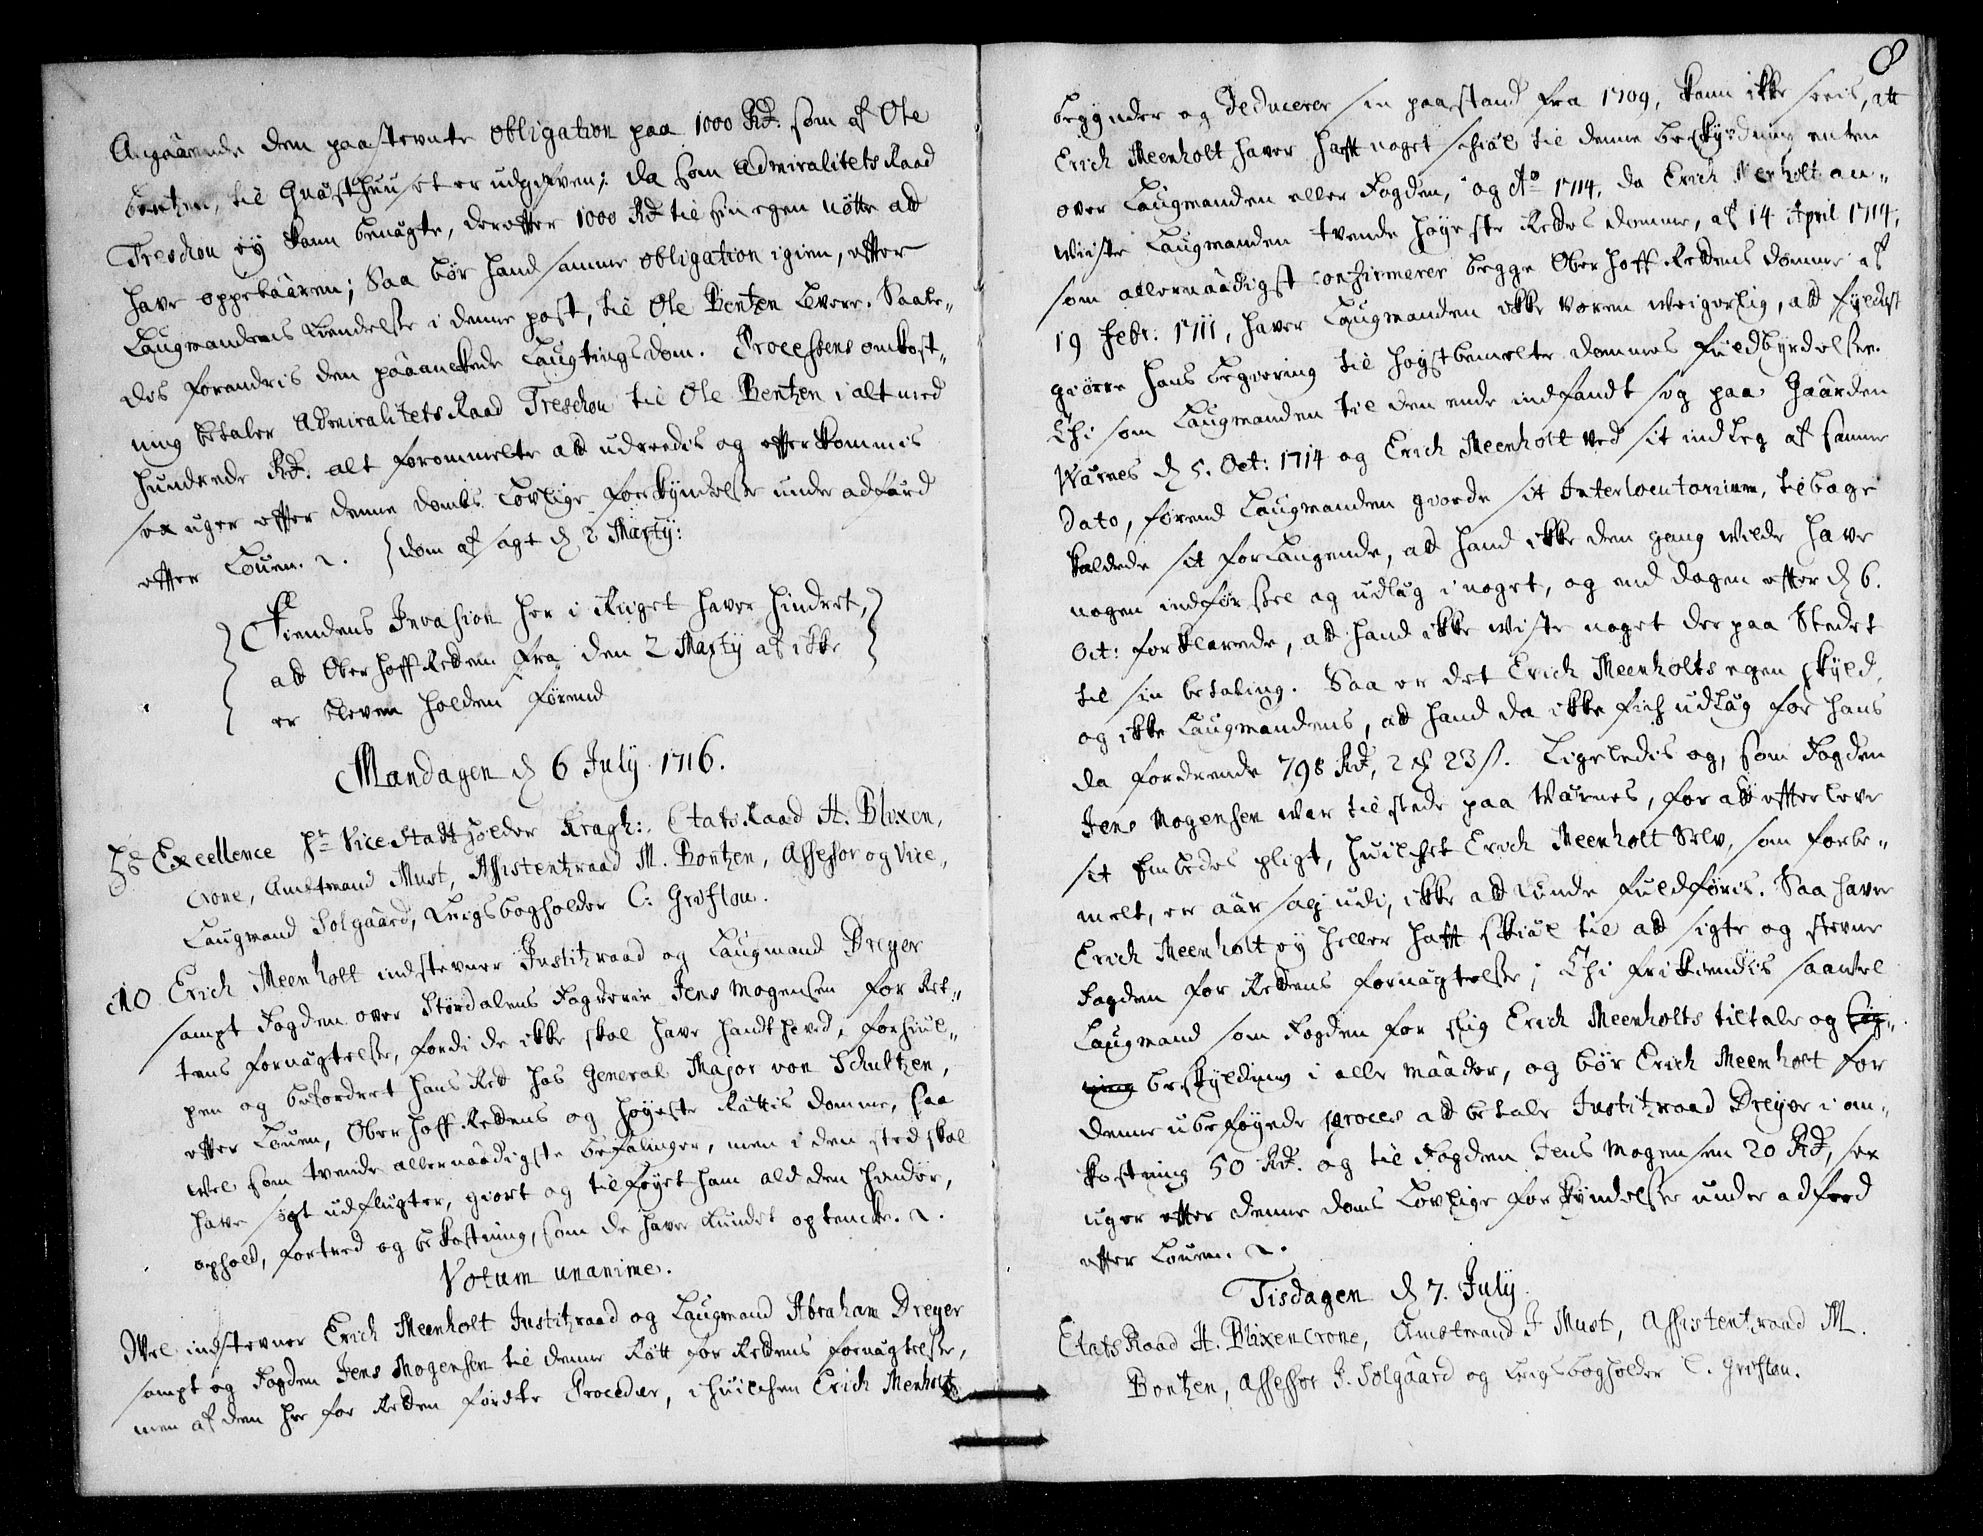 Angaaende den paastevnte obligation paa 1000 Rd. som af Ole
Bentzen, til Quæsthuuset er udgifven; da som Admiralitets Raad
Treschou ey kann benægte, derefter 1000 Rd til sin egen nötte att
have oppebaaren; Saa bör hand samme obligation igien, effter
Laugmandens Kiendelse i denne post, til Ole Bentzen levere. Saale-
des forandris den paaanckede Laugtings dom. Processens omkost-
ning betaler Admiralitets Raad Treschou til Ole Bentzen i alt med
hundrede Rd. alt forommelte att udreedis og effterkommis
sex uger effter denne dombs lovlige forkyndelse under adfærd
effter Louen. Dom afsagt d 2 Marty:
Fiendens Invasion her i Riiget haver hindret,
att OberhoffRetten fra den 2 Marty af ikke
er bleven holden förend
Mandagen d 6 July 1716.
Hs Excellence Hr ViceStattholder Kragh:, Etats Raad H. Blixen,
crone, Amtmand Must, Assistentzraad M. Bentzen, Assessor og Vice,
Laugmand Solgaard, Krigsbogholder C: Gröflou.
No Erich Meenholt indstevner Justitzraad og Laugmand Dreyer
sampt Fogden over Stördalens Fogderie Jens Mogensen for Ret-
tens fornægtelse, fordi de ikke skal have handthæved, forhiul-
pen og befordret hans Ret hos General Major von Schultzen,
effter Louen, OberhoffRettens og höyeste Rættis domme, saa
vel som tvende allernaadigste befalinger, men i den sted skal
have sögt udflugter, giort og tilföyet ham ald den hinder,
ophold, fortred og bekostning, som de haver kundet optencke.
Votum unanime.
Vel indstevner Erich Meenholt Justitzraad og Laugmand Abraham Dreyer
sampt og Fogden Jens Mogensen til denne Rätt for Rettens fornægtelse,
men af den her for Retten förte Procedur, i huilchen Erich Menholt
8
begynder og Deducerer sin paastand fra 1709, kann ikke sees, att
Erich Meenholt haver hafft noget skiäl til denne beskyldning enten
over Laugmanden eller Fogden, og Ao 1714, da Erich Meenholt an-
viiste Laugmanden tvende höyeste Rettes domme, af 14 April 1714,
som allernaadigst confirmerer begge Oberhoff Rettens domme af
19 Febr: 1711, haver Laugmanden ikke været weigerlig, att fyldest
giörre hans begiering til höystbemelte dommes fuldbyrdelse.
Thi som Laugmanden til den ende indfandt sig paa Gaarden
Wærnes d 5. Oct: 1714 og Erich Meenholt ved sit indleg af samme
Dato, förend Laugmanden giorde sit Interlocutorium, tilbage
kaldede sit forlangende, att hand ikke den gang vilde have
nogen indförsel og udlæg i noget, og end dagen effter d 6.
Oct: forklarede, att hand ikke viste noget der paa Stedet
til sin betaling. Saa er det Erich Meenholts egen skyld,
og ikke Laugmandens, att hand da ikke fich udlæg for hans
da fordrende 798 Rd, 2 ₰ 23 s. Ligeledis og, som Fogden
Jens Mogensen war tilstede paa Wærnes, for att effterleve
sit Embedes pligt, huilchet Erich Meenholt Selv, som forbe-
melt, er aarsag udi, ikke att kunde fuldföris. Saa haver
Erich Meenholt ey heller hafft skiäl til att sigte og stevne
Fogden for Rettens fornægtelse; Thi frikiendis saavel
Laugmand som Fogden for slig Erich Meenholts tiltale og
beskylding i alle maader, og bör Erich Meenholt for
denne ubeföyede proces att betale Justitzraad Dreyer i om-
kostning 50 Rd. og til Fogden Jens Mogensen 20 Rd, sex
uger effter denne doms Lovlige forkyndelse under adferd
effter Louen.
Tisdagen d 7. July.
Etats Raad H. Blixencrone, Amtmand J Must, Assistentzraad M.
Bentzen, Assessor J. Solgaard og Krigsbogholder C. Gröflou.